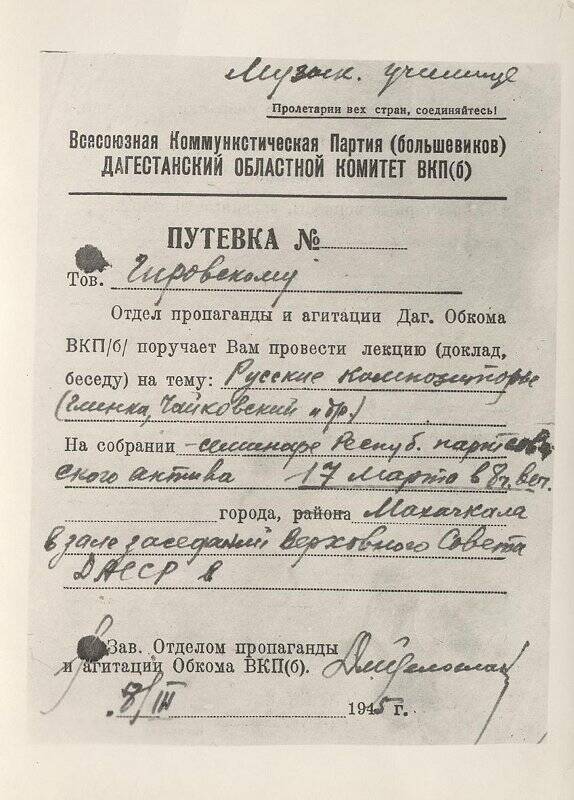 Музык. училище
Пролетарии вех стран, соединяйтесь!
Всесоюзная Коммунистическая Партия (большевиков)
ДАГЕСТАНСКИЙ ОБЛАСТНОЙ КОМИТЕТ ВКП(б)
ПУТЕВКА №
Тов. Гировскому
Отдел пропаганды и агитации Даг. Обкома
ВКП/б/ поручает Вам провести лекцию (доклад,
беседу) на тему: Русские композиторы
(Глинка, Чайковский и др.)
На собрании - семинаре Респуб. партсовет
ского актива 17 марта в 8 ч. веч.
города, района Махачкала
в зале заседаний Верховного Совета
ДАССР
Зав. Отделом пропаганды
и агитации Обкома ВКП(б).
8/III 1945 г.